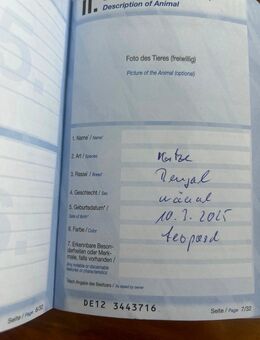 II.
Description of Animal
Foto des Tieres (freiwillig)
Picture of the Animal (optional)
1. Name / Name
2. Art / Species
Katze
3. Rasse / Breed
Bengal
4. Geschlecht / Sex
männl
5. Geburtsdatum* / Date of Birth*
10.3.2025
6. Farbe / Color
Leopard
7. Erkennbare Beson-
derheiten oder Merk-
male, falls vorhanden /
Any notable or discernable
features or characteristics
*nach Angabe des Besitzers / As stated by owner
DE12 3443716
Seite / Page 6/32
Seite / Page 7/32